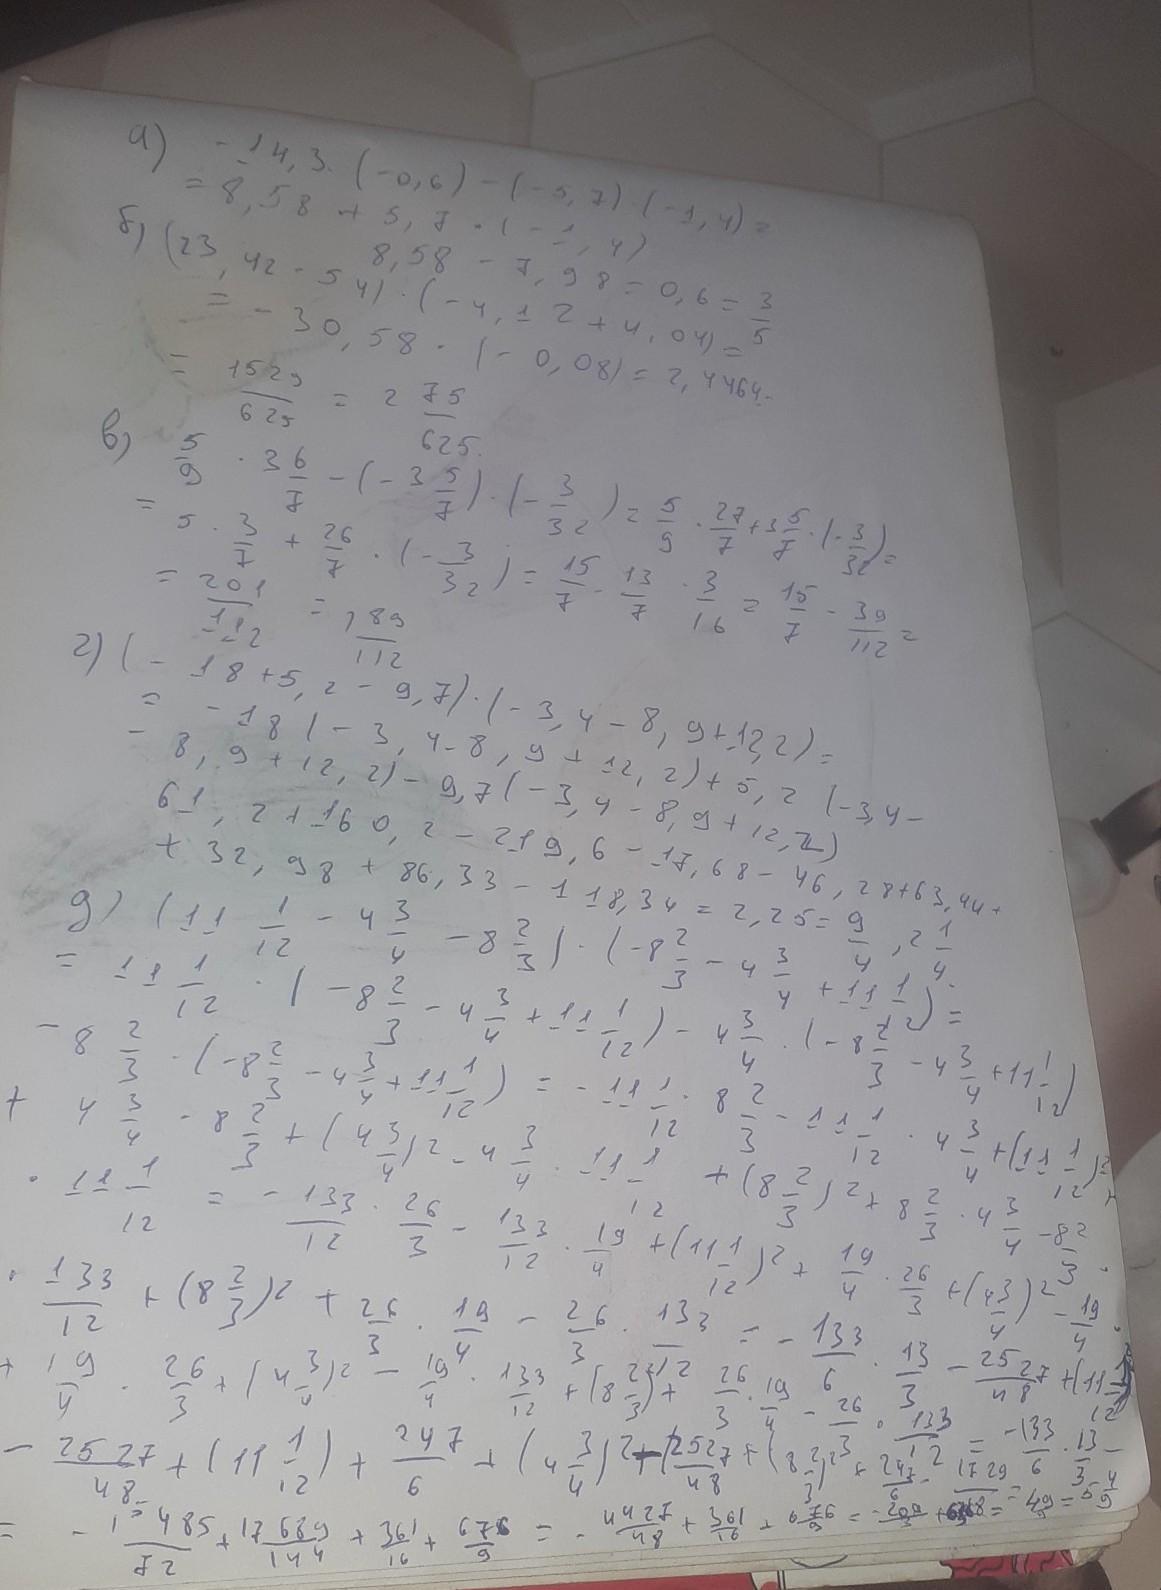 а) -14,3·(-0,6)-(-5,7)·(-1,4)=
=8,58+5,7·(-1,4)
8,58-7,98=0,6=3/5
б) (23,42-54)·(-4,12+4,04)=
=-30,58·(-0,08)=2,4464.
=1529/625=2 75/625.
в) 5/9·3 6/7-(-3 5/7)·(-3/32)=5/9·27/7+3 5/7·(-3/32)=
=5·3/7+26/7·(-3/32)=15/7-13/7·3/16=15/7-39/112=
=201/112=1 89/112
г) (-18+5,2-9,7)·(-3,4-8,9+12,2)=
=-18(-3,4-8,9+12,2)+5,2(-3,4-
-8,9+12,2)-9,7(-3,4-8,9+12,2)
61,2+160,2-219,6-17,68-46,28+63,44+
+32,98+86,33-118,34=2,25=9/4,2 1/4.
д) (11 1/12-4 3/4-8 2/3)·(-8 2/3-4 3/4+11 1/12)=
=11 1/12·(-8 2/3-4 3/4+11 1/12)-4 3/4·(-8 2/3-4 3/4+11 1/12)
-8 2/3·(-8 2/3-4 3/4+11 1/12)=-11 1/12·8 2/3-11 1/12·4 3/4+(11 1/12)²+
+4 3/4-8 2/3+(4 3/4)²-4 3/4·11 1/12+(8 2/3)²+8 2/3·4 3/4-8 2/3·
·11 1/12=-133/12·26/3-133/12·19/4+(11 1/12)²+19/4·26/3+(4 3/4)²-19/4·
·133/12+(8 2/3)²+26/3·19/4-26/3·133/12=-133/6·13/3-2527/48+(11 1/12)²
+19/4·26/3+(4 3/4)²-19/4·133/12+(8 2/3)²+26/3·19/4-26/3·133/12=-133/6·13/3-
-2527/48+(11 1/12)+247/6+(4 3/4)²-2527/48+(8 2/3)²+247/6-1729/
=-1485/72+17689/144+361/16+676/9=-4427/48+361/16+676/9= =49/9=5 4/9